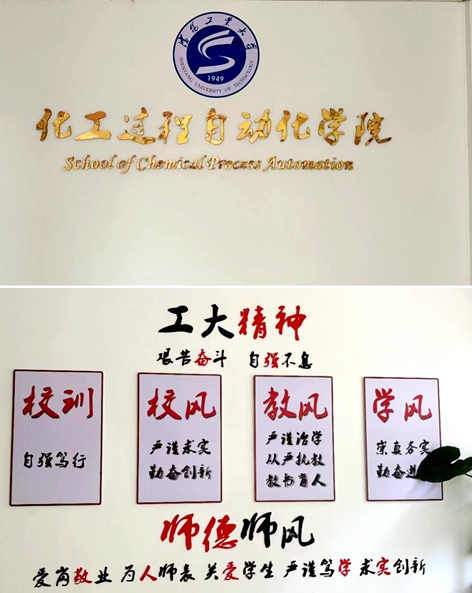 沈阳工业大学
SHENYANG UNIVERSITY OF TECHNOLOGY
1949
化工过程自动化学院
School of Chemical Process Automation
工大精神
艰苦奋斗 自强不息
校训
自强笃行
校风
严谨求实
勤奋创新
教风
严谨治学
从严执教
教书育人
学风
崇真务实
勤奋进
师德师风
爱岗敬业 为人师表 关爱学生 严谨笃学 求实创新